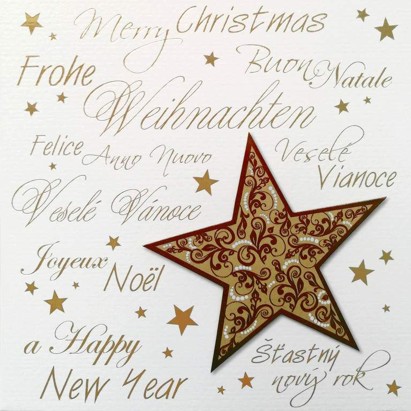 Merry Christmas
Frohe
Buon Natale
Weihnachten
Felice Anno Nuovo
Veselé Vianoce
Veselé Vánoce
Joyeux Noël
a Happy New Year
Šťastný nový rok